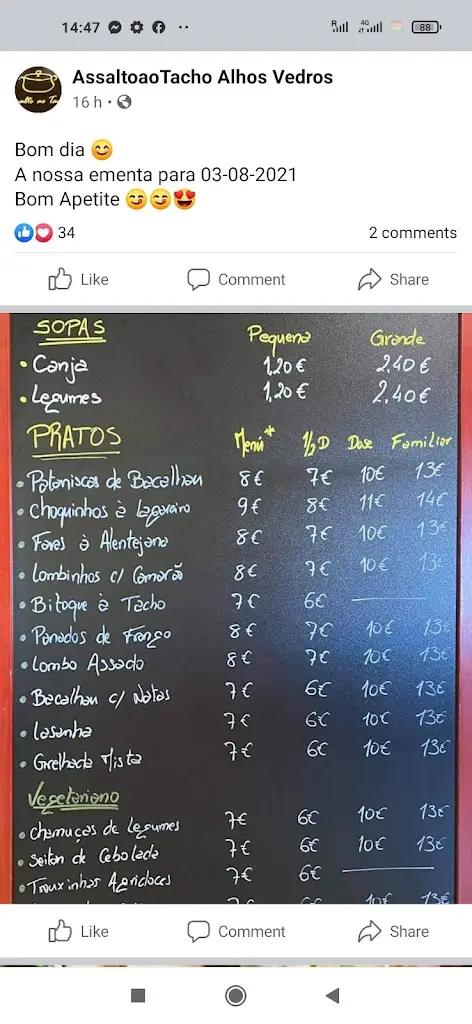 14:47 88
R 4G
AssaltoaoTacho Alhos Vedros
16 h
Bom dia 😊
A nossa ementa para 03-08-2021
Bom Apetite 😊😊😍
34 2 comments
Like Comment Share
SOPAS Pequena Grande
• Canja 1,20€ 2,40€
• Legumes 1,20€ 2,40€
PRATOS Menú* 1/2 D Dose Familiar
• Pataniscas de Bacalhau 8€ 7€ 10€ 13€
• Choquinhos à Lagareiro 9€ 8€ 11€ 14€
• Favas à Alentejana 8€ 7€ 10€ 13€
• Lombinhos c/ Camarão 8€ 7€ 10€ 13€
• Bitoque à Tacho 7€ 6€
• Panados de Frango 8€ 7€ 10€ 13€
• Lombo Assado 8€ 7€ 10€ 13€
• Bacalhau c/ Natas 7€ 6€ 10€ 13€
• Lasanha 7€ 6€ 10€ 13€
• Grelhada Mista 7€ 6€ 10€ 13€
Vegetariano
• Chamuças de Legumes 7€ 6€ 10€ 13€
• Seitan de Cebolada 7€ 6€ 10€ 13€
• Trouxinhas Agridoces 7€ 6€
Like Comment Share